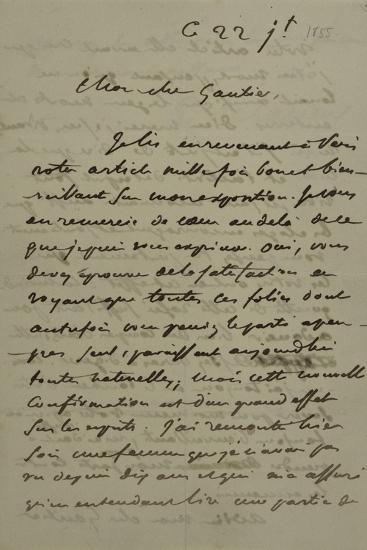 Ce 22 jt 1855.
Mon cher Gautier,
Je lis en revenant à Paris
votre article mille fois bon et bien-
veillant sur mon exposition. Je vous
en remercie de cœur au delà de ce
que je puis vous exprimer. Oui, vous
devez éprouver de la satisfaction en
voyant que toutes ces folies dont
autrefois vous preniez le parti à peu-
-près seul, paraissent aujourd'hui
toutes naturelles, mais cette nouvelle
confirmation est d'un grand effet
sur les esprits. J'ai rencontré hier
soir une femme que je n'avais pas
vu depuis dix ans et qui m'a assuré
qu'en entendant lire une partie de